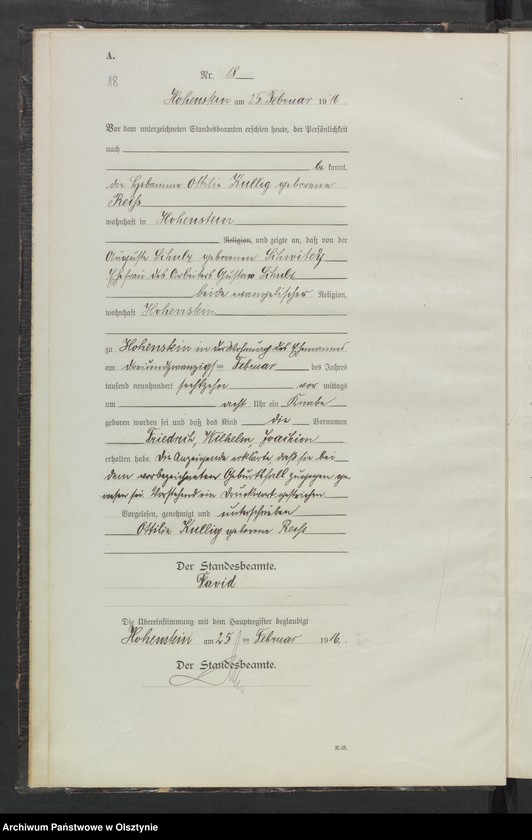 A.
18
Nr. 18
Hohenstein am 25. Februar 1916.
Vor dem unterzeichneten Standesbeamten erschien heute, der Persönlichkeit
nach
be kannt,
die Hebamme Ottilie Kullig geborene
Reiss
wohnhaft in Hohenstein
Religion, und zeigte an, daß von der
Auguste Schulz geborenen
Ehefrau des Arbeiters Gustav Schulz
beide evangelischer Religion,
wohnhaft Hohenstein
zu Hohenstein in der Wohnung des Ehemannes
am dreiundzwanzigsten Februar des Jahres
tausend neunhundert sechtzehn vor mittags
um acht Uhr ein Knabe
geboren worden sei und daß das Kind die Vornamen
Friedrich, Wilhelm,
erhalten habe. Die Anzeigende erklärte, daß sie bei
dem vorbezeichneten Geburtsfall zugegen ge-
wesen sei. Vorstehend ein Druckwort gestrichen
Vorgelesen, genehmigt und unterschrieben
Ottilie Kullig geborene Reiss
Der Standesbeamte.
David
Die Übereinstimmung mit dem Hauptregister beglaubigt
Hohenstein am 25 ten Februar 1916.
Der Standesbeamte.
R.-R.
Archiwum Państwowe w Olsztynie